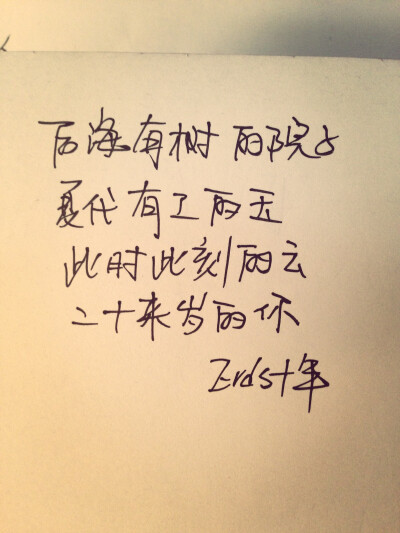 后海有树的院子
夏代有工的玉
此时此刻的云
二十来岁的你
Erds十年